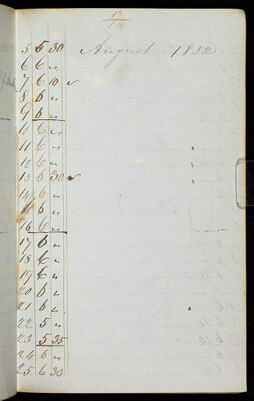 7
5 5 30 August 1832
6 6 "
7 6 10
8 6 "
9 6 "
10 6 "
11 6 "
12 6 "
13 6 30
14 6 "
6 "
16 6 "
17 6 "
18 6 "
19 6 "
20 6 "
21 6 "
22 5 "
23 5 35
24 6 "
25 6 30